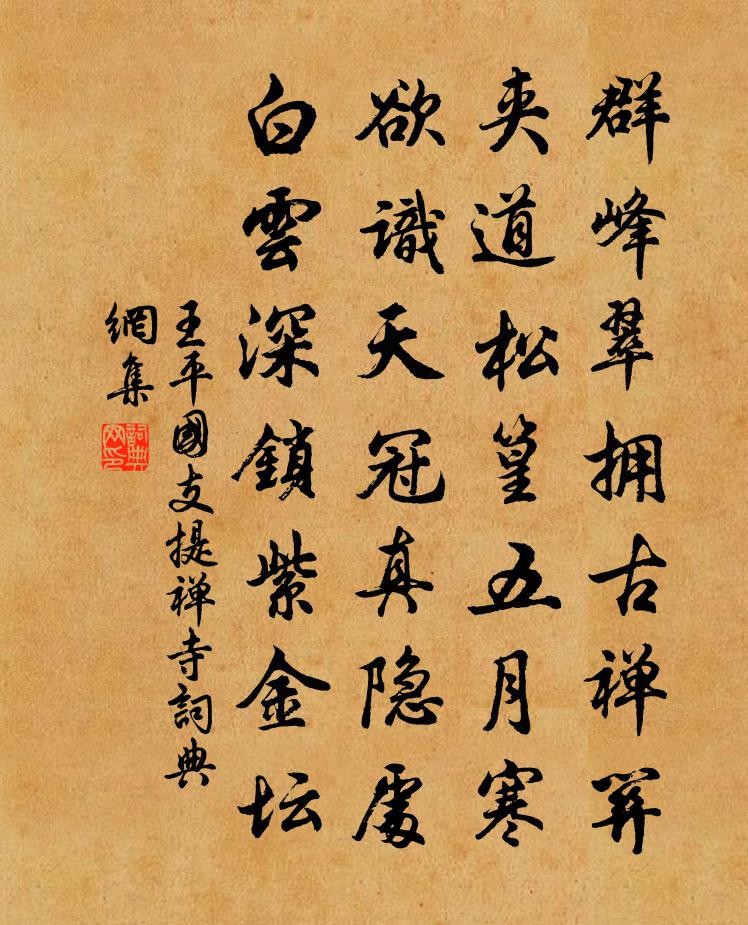 群峰翠拥古禅關
夾道松篁五月寒
欲識天冠真隐處
白雲深鎖紫金坛
王平國支提禅寺詞典
網集
詞典
网印